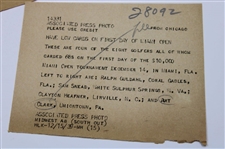 28092
ASSOCIATED PRESS PHOTO
PLEASE USE CREDIT
FROM CHICAGO
HAVE LOW CARDS ON FIRST DAY OF MIAMI OPEN
THESE ARE FOUR OF THE EIGHT GOLFERS ALL OF WHOM
CARDED 68S ON THE FIRST DAY OF THE $10,000
MIAMI OPEN TOURNAMENT DECEMBER 15, IN MIAMI, FLA.
LEFT TO RIGHT ARE: RALPH GULDAHL, CORAL GABLES,
FLA.; SAM SNEAD, WHITE SULPHUR SPRINGS, W. VA.;
CLAYTON HEAFNER, LINVILLE, N. C.; AND
CLARK, UNIONTOWN, PA.
ASSOCIATED PRESS PHOTO
MIDWEST AR (SOUTH OUT)